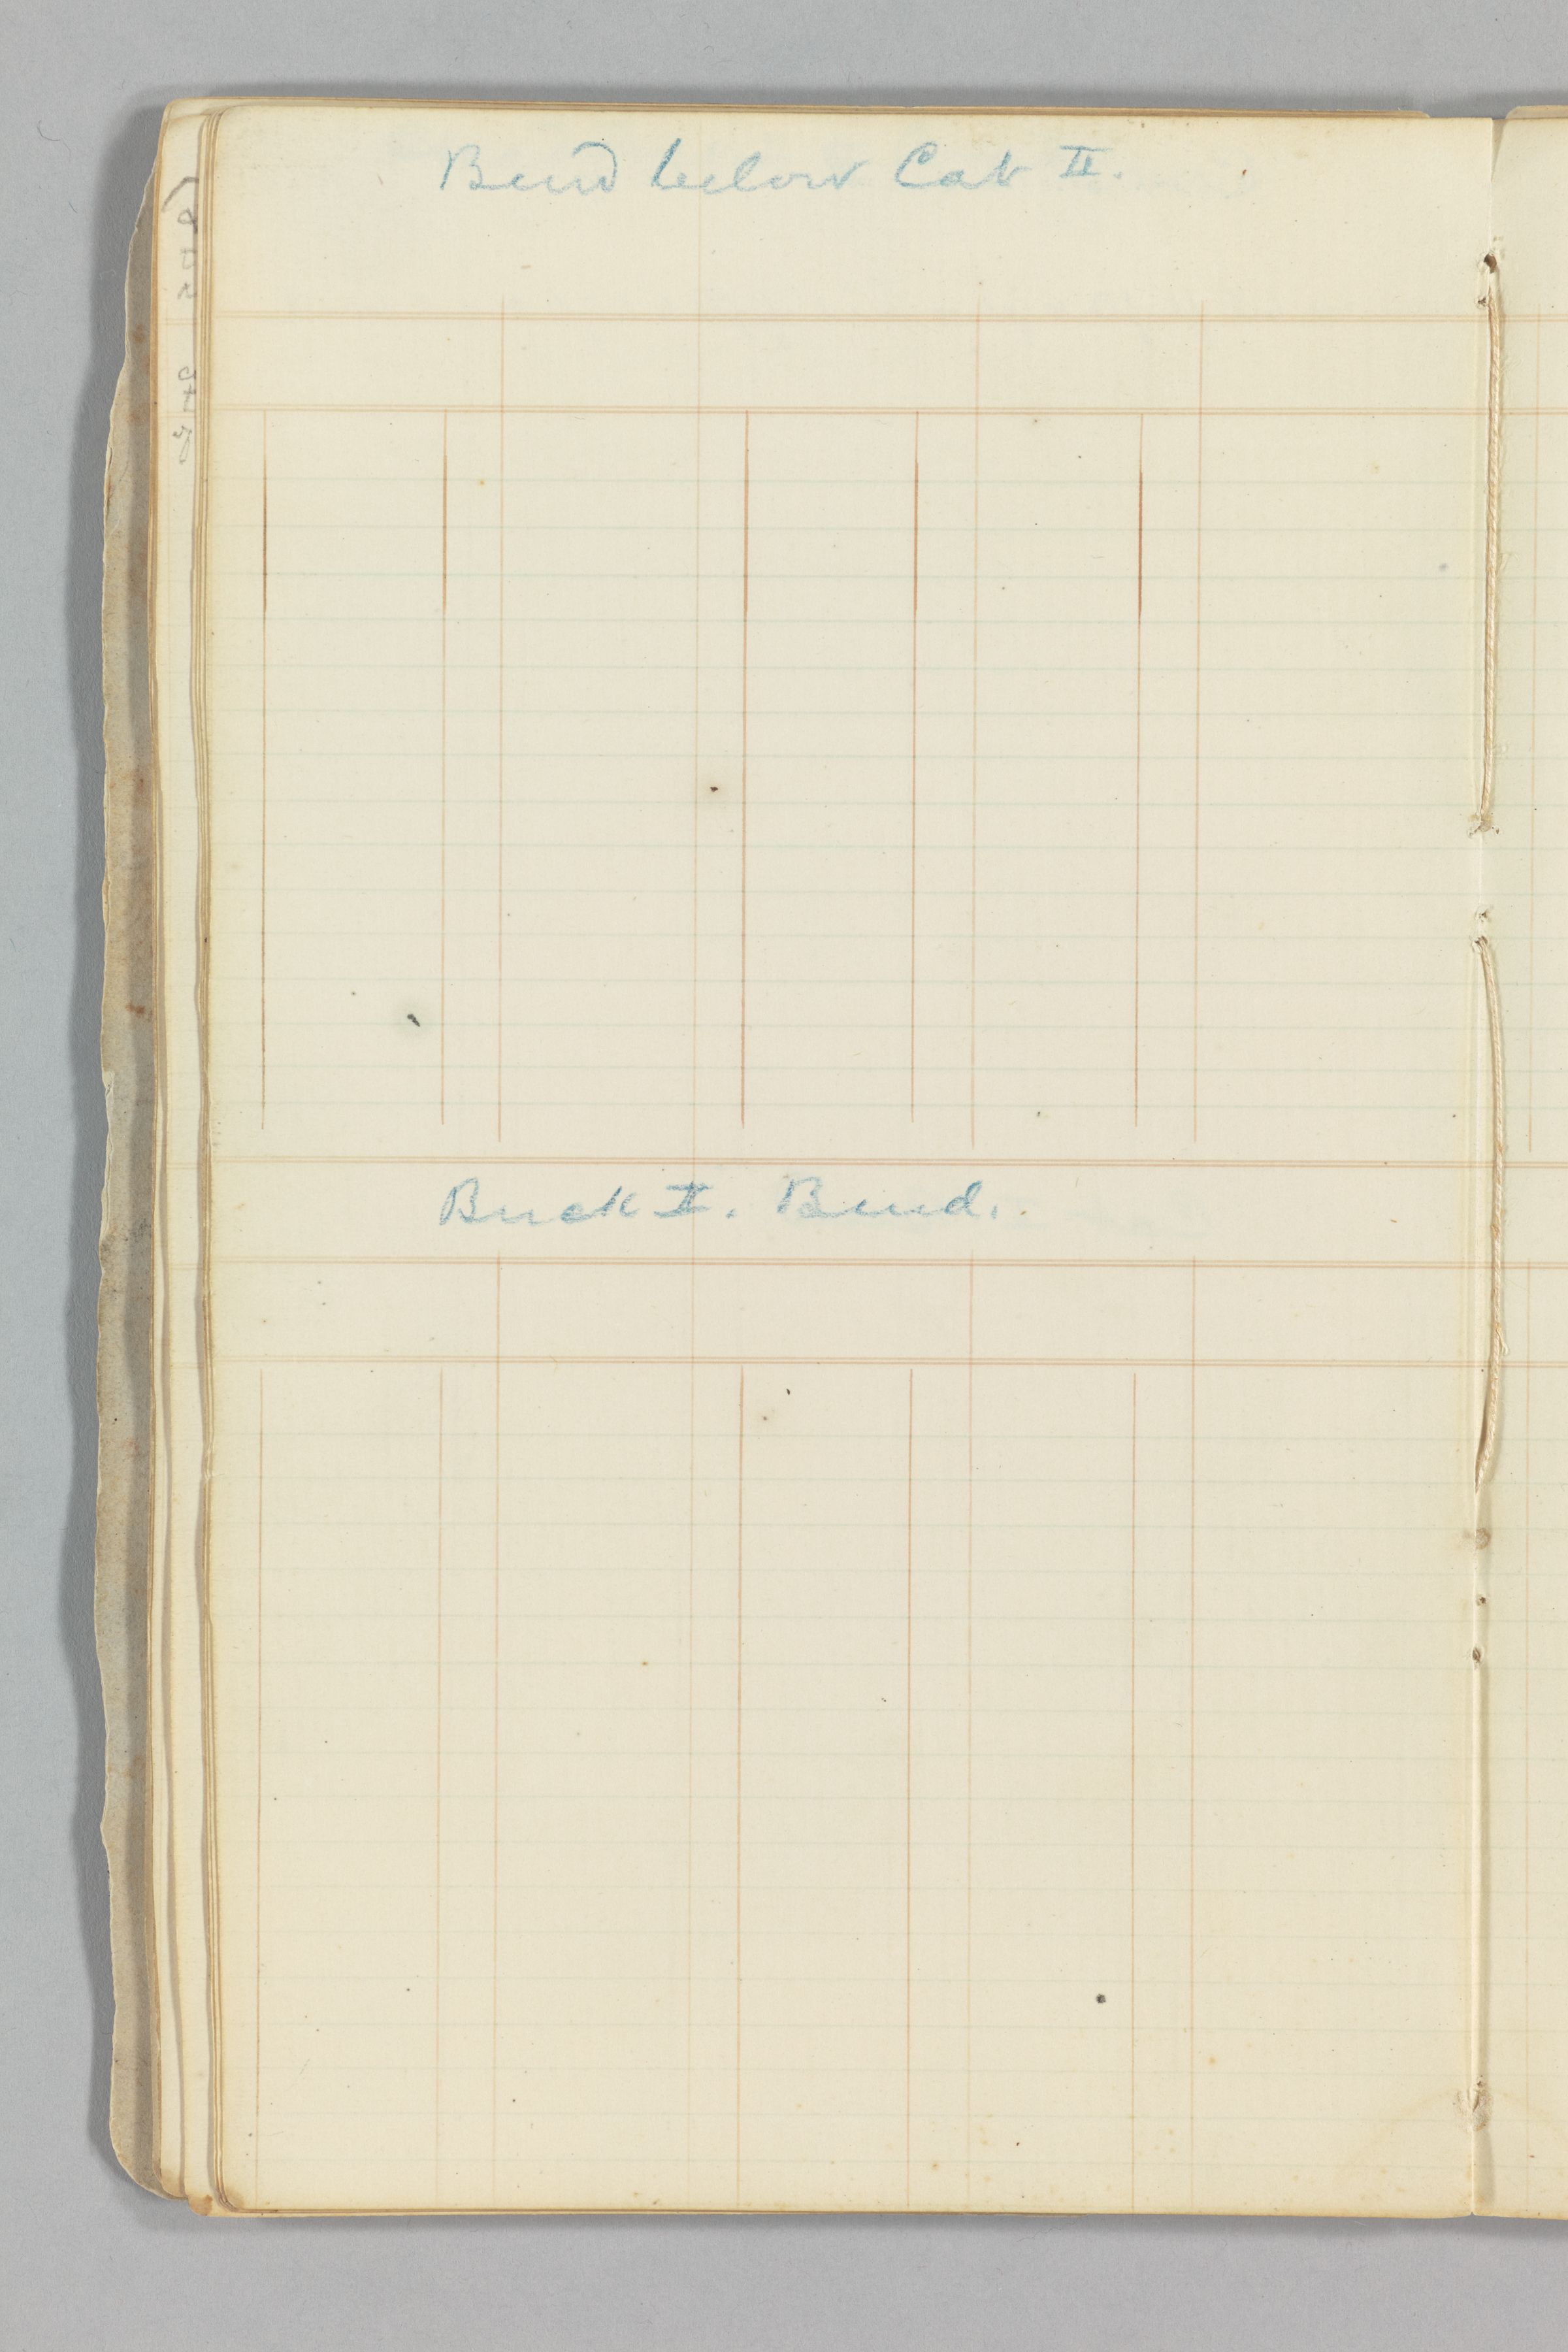 Bend below Cat II.
Buck II. Bend.